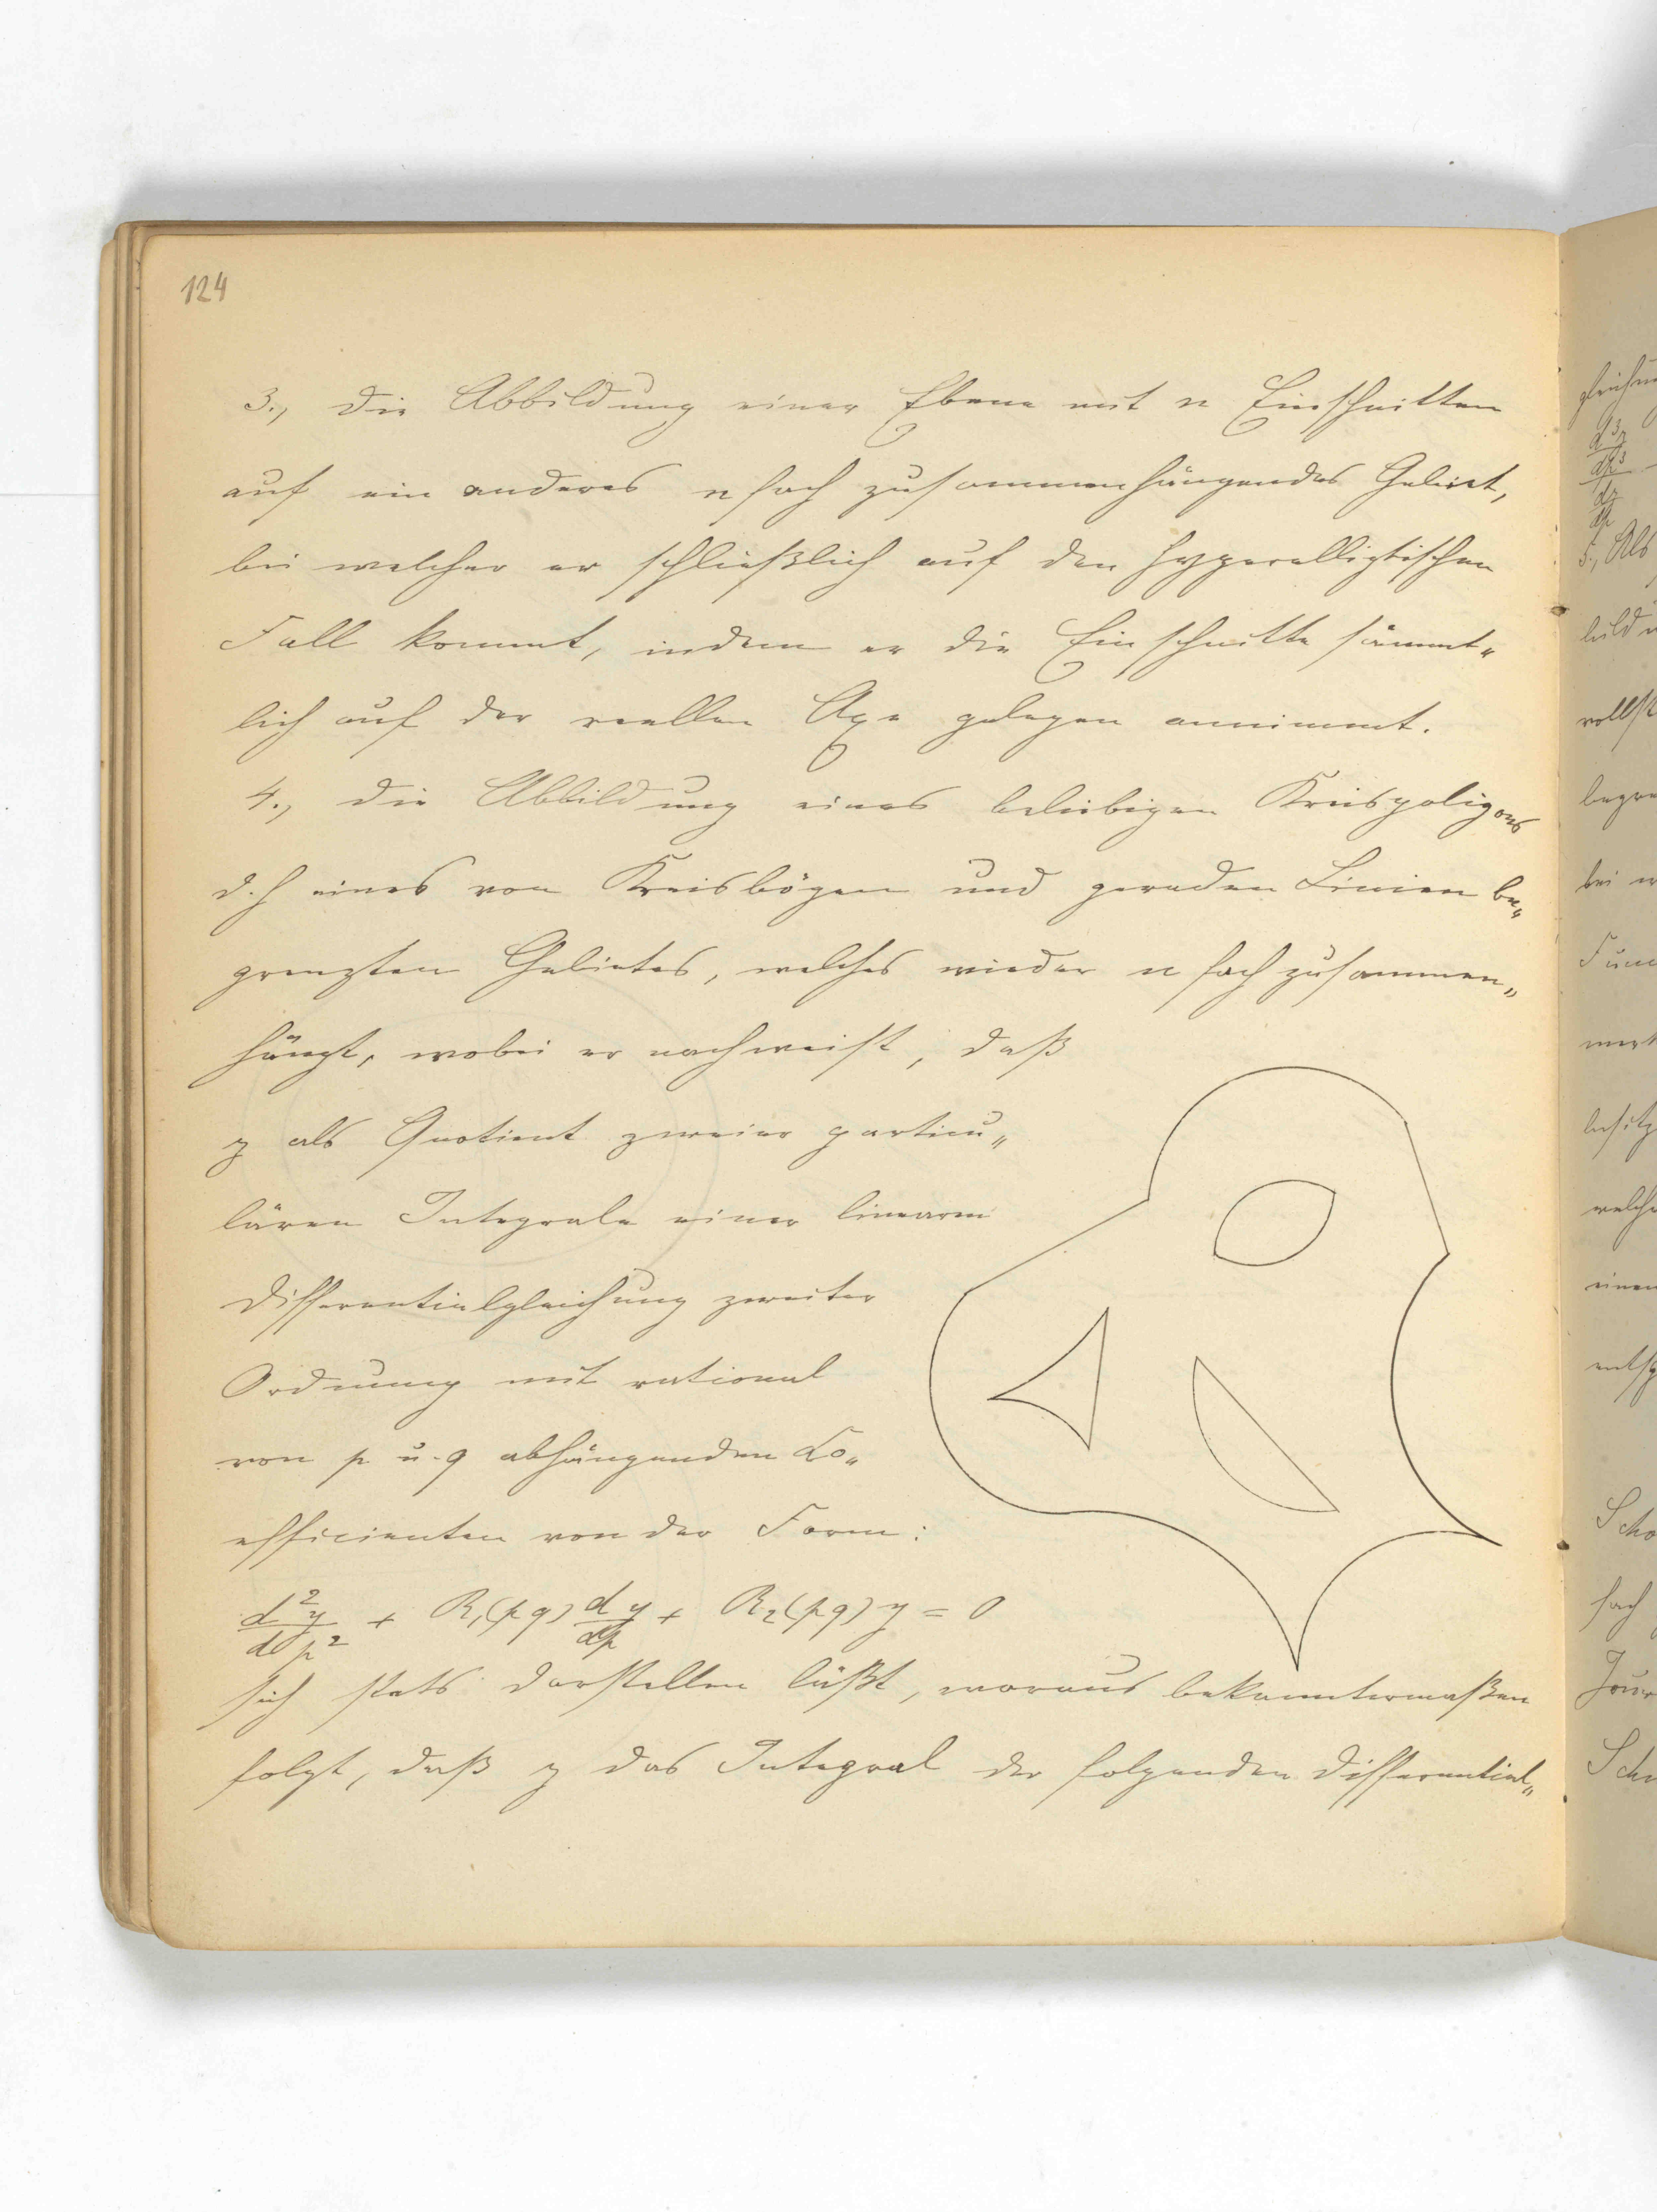 124
3., die Abbildung einer Ebene mit n Einschnitten
auf ein anderes n fach zusammenhängendes Gebiet,
bei welcher er schließlich auf den hyperelliptischen
Fall kommt, indem er die Einschnitte sämmt„
lich auf der reellen Axe gelegen annimmt.
4., die Abbildung eines beliebigen Kreispoligons
d.h eines von Kreisbögen und geraden Linien be„
grenzten Gebietes, welches wieder n fach zusammen„
hängt, wobei er nachweist, daß
z als Quotient zweier particu„
lären Integrale einer linearen
Differentialgleichung zweiter
Ordnung mit rational
von p u. q abhängenden Co„
efficienten von der Form:
d²y/dp² + R₁(pq) dy/dp + R₂(pq) y = 0
sich stets darstellen läßt, woraus bekanntermaßen
folgt, daß z das Integral der folgenden Differential„